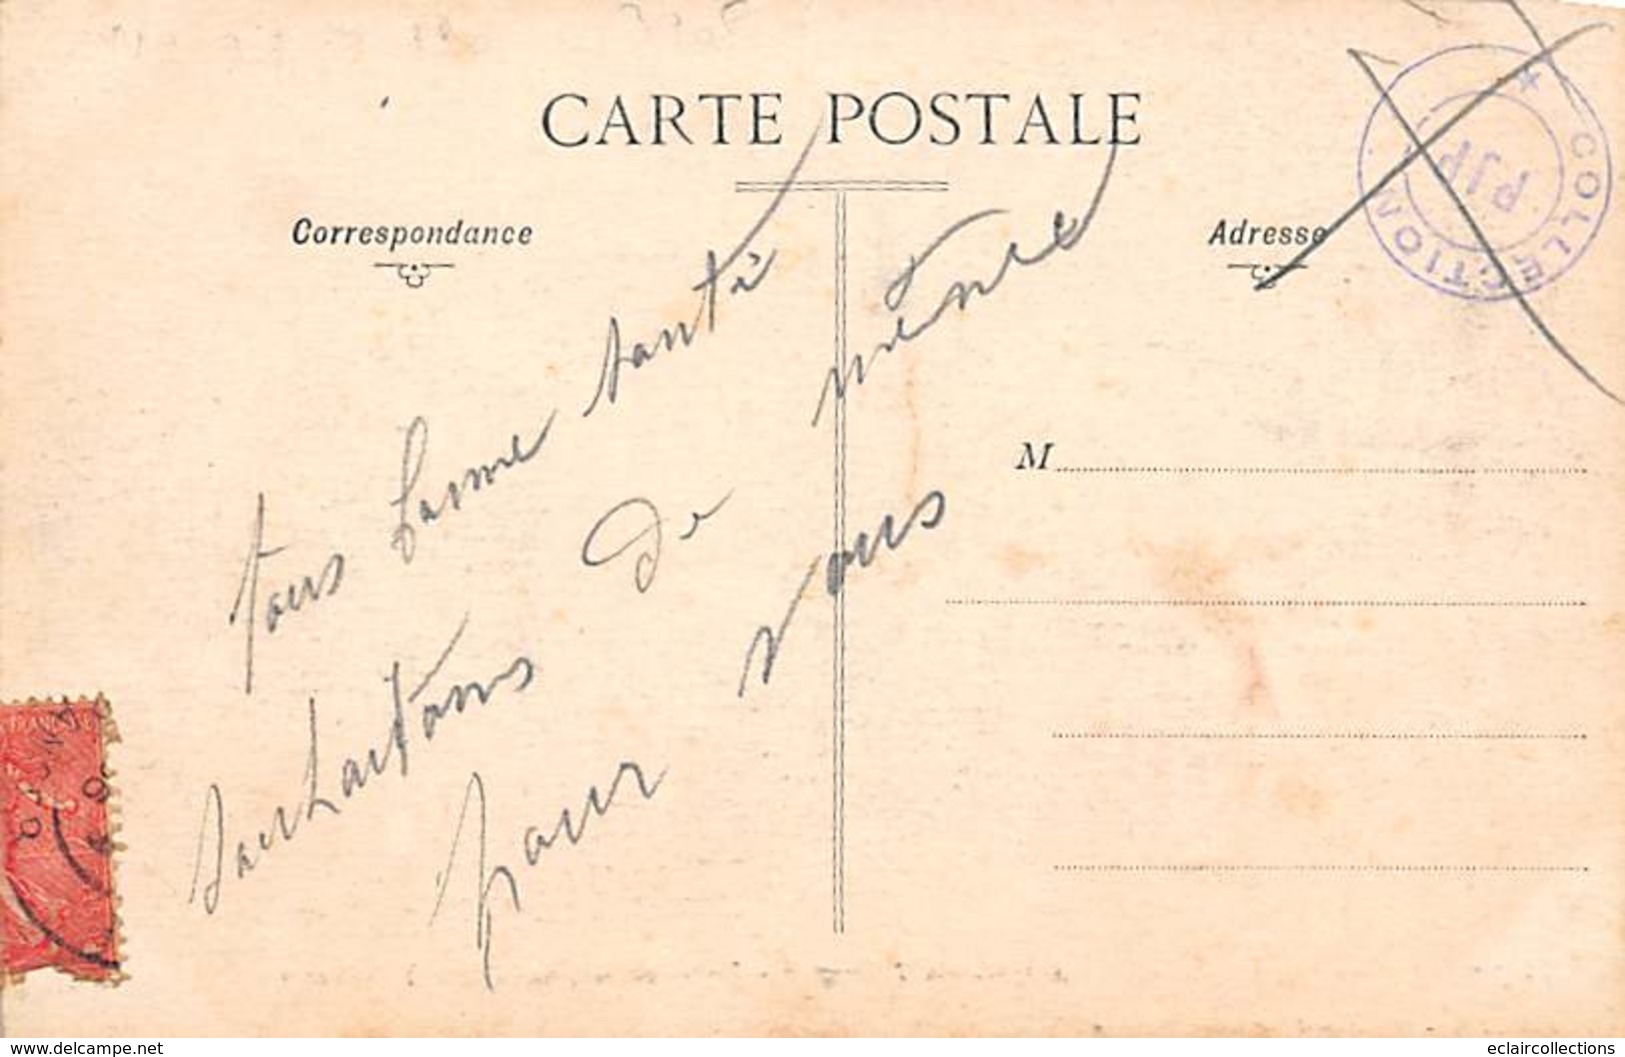 CARTE POSTALE
Correspondance
Adresse
COLLECTION
PJP
M
tous bonne santé
souhaitons de même
pour vous
www.delcampe.net
eclaircollections